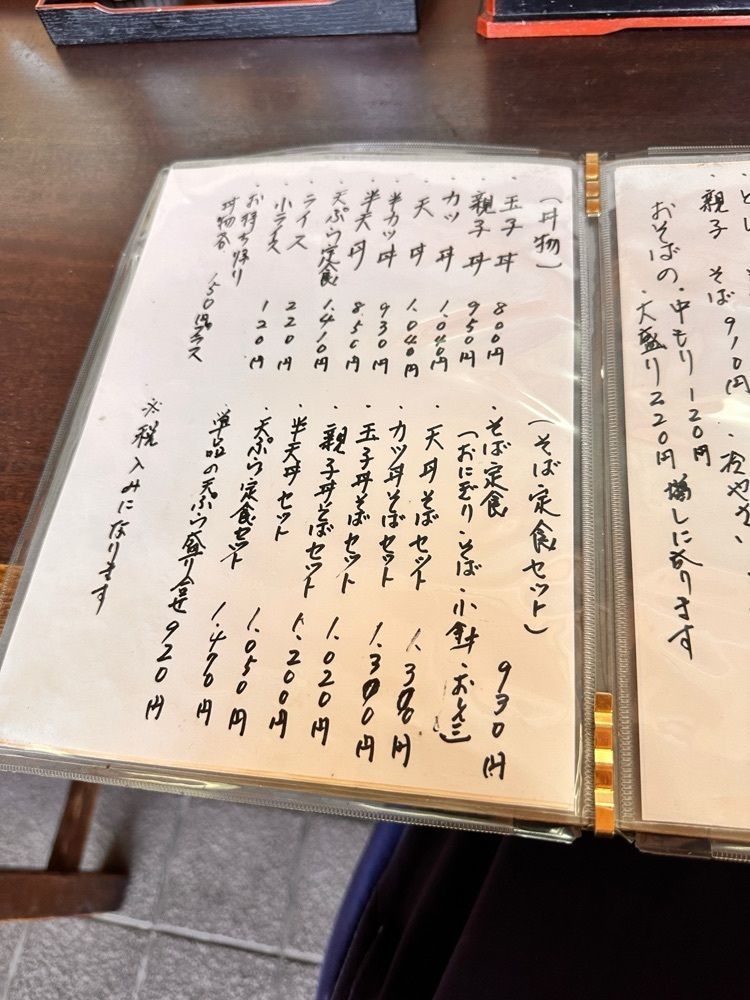 親子 そば 910円
おそばの・中もり 120円
・大盛り220円増しになります
(丼物)
・玉子丼 800円
・親子丼 950円
・カツ丼 1.040円
・天丼 1.040円
・半カツ丼 930円
・半天丼 850円
・天ぷら定食 1.410円
・ライス 220円
・小ライス 120円
・お持ち帰り
丼物容 150円プラス
(そば定食セット)
・そば定食 930円
(おにぎり・そば・小鉢・おしんこ)
・天丼そばセット 1.300円
・カツ丼そばセット 1.300円
・玉子丼そばセット 1.020円
・親子丼そばセット 1.200円
・半天丼セット 1.050円
・天ぷら定食セット 1.470円
・単品の天ぷら盛り合せ 920円
※税入みになります